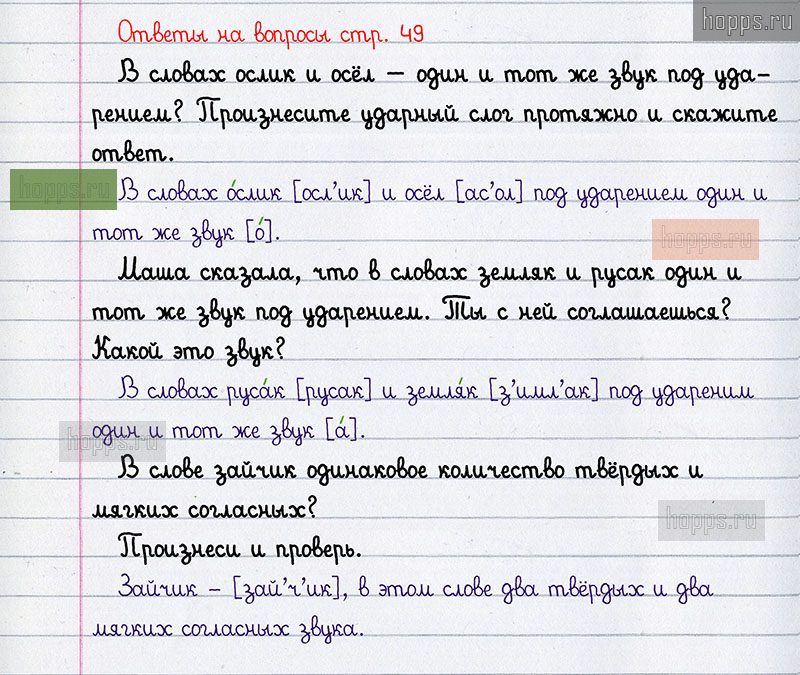 hopps.ru
Ответы на вопросы стр. 49
В словах ослик и осёл – один и тот же звук под уда-
рением? Произнесите ударный слог протяжно и скажите
ответ.
hopps.ru
В словах о́слик [осл'ик] и осёл [ас'ол] под ударением один и
тот же звук [о́].
hopps.ru
Маша сказала, что в словах земляк и русак один и
тот же звук под ударением. Ты с ней соглашаешься?
Какой это звук?
В словах руса́к [русак] и земля́к [з'имл'ак] под удареним
один и тот же звук [а́].
hopps.ru
В слове зайчик одинаковое количество твёрдых и
мягких согласных?
hopps.ru
Произнеси и проверь.
Зайчик – [зай'ч'ик], в этом слове два твёрдых и два
мягких согласных звука.